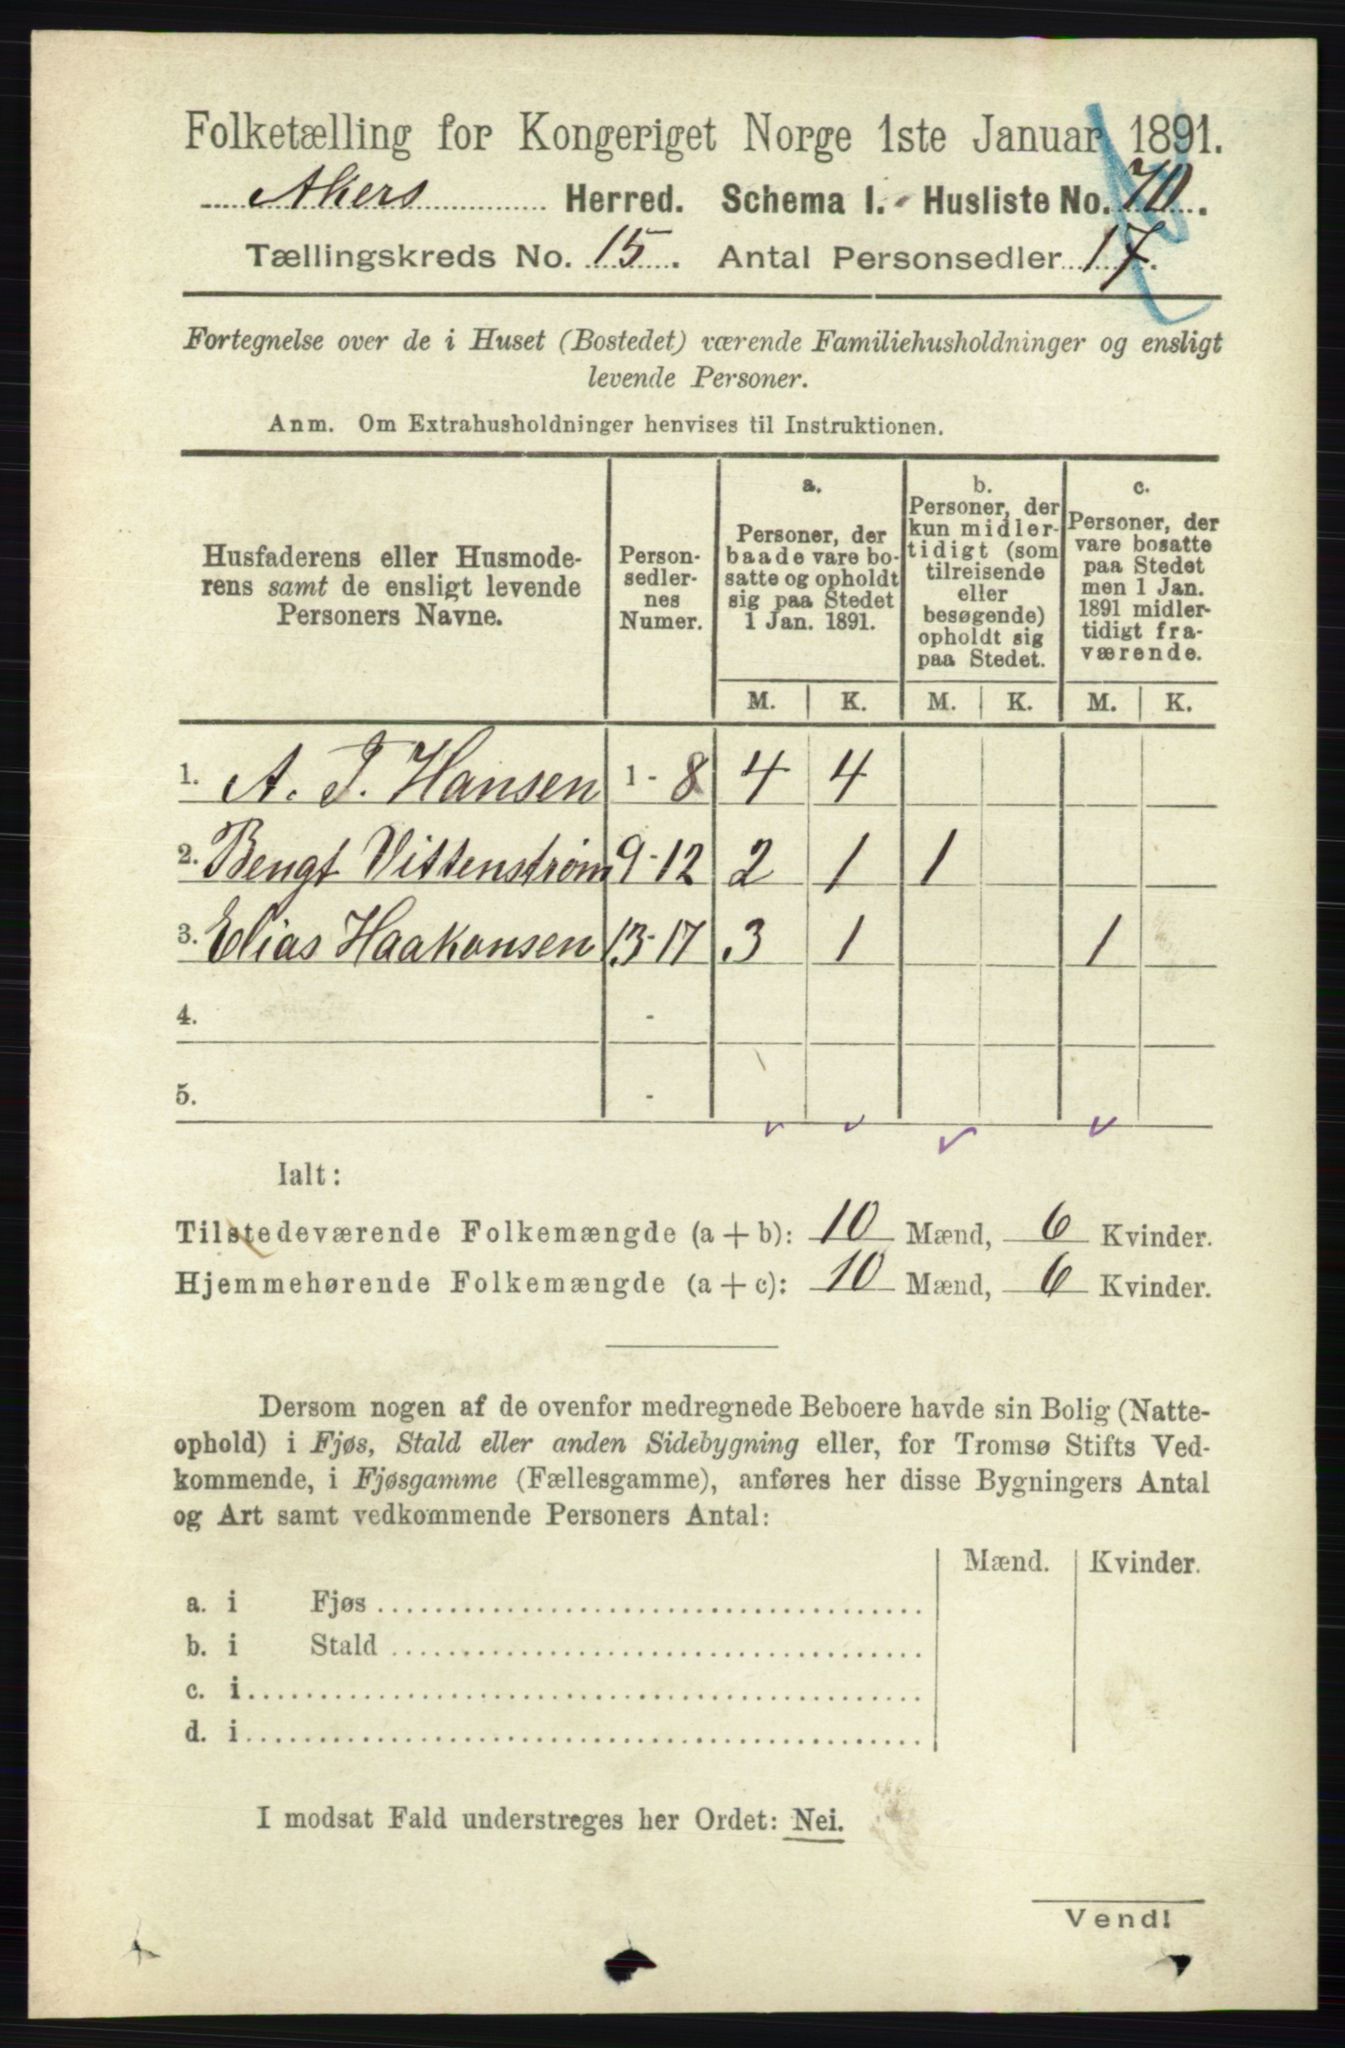 Folketælling for Kongeriget Norge 1ste Januar 1891.
Akers Herred. Schema I. - Husliste No. 70.
Tællingskreds No. 15. Antal Personsedler 17.
Fortegnelse over de i Huset (Bostedet) værende Familiehusholdninger og ensligt
levende Personer.
Anm. Om Extrahusholdninger henvises til Instruktionen.
Husfaderens eller Husmode-
rens samt de ensligt levende
Personers Navne.
Person-
sedler-
nes
Numer.
a.
Personer, der
baade vare bo-
satte og opholdt
sig paa Stedet
1 Jan. 1891.
b.
Personer, der
kun midler-
tidigt (som
tilreisende
eller
besøgende)
opholdt sig
paa Stedet.
c.
Personer, der
vare bosatte
paa Stedet
men 1 Jan.
1891 midler-
tidigt fra-
værende.
M. K. M. K. M. K.
1. A. J. Hansen 1 - 8 4 4
2. Bengt Vittenstrøm 9 - 12 2 1 1
3. Elias Haakonsen 13 - 17 3 1 1
4. -
5. -
Ialt:
Tilstedeværende Folkemængde (a + b): 10 Mænd, 6 Kvinder.
Hjemmehørende Folkemængde (a + c): 10 Mænd, 6 Kvinder.
Dersom nogen af de ovenfor medregnede Beboere havde sin Bolig (Natte-
ophold) i Fjøs, Stald eller anden Sidebygning eller, for Tromsø Stifts Ved-
kommende, i Fjøsgamme (Fællesgamme), anføres her disse Bygningers Antal
og Art samt vedkommende Personers Antal:
Mænd. Kvinder.
a. i Fjøs
b. i Stald
c. i
d. i
I modsat Fald understreges her Ordet: Nei.
Vend!